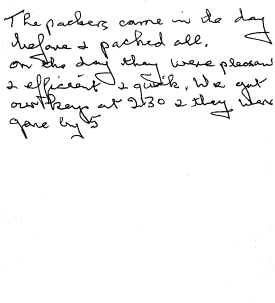 The packers came in the day
before & packed all.
on the day they were pleasan
& efficient & quick. We got
our keys at 2.30 & they were
gone by 5